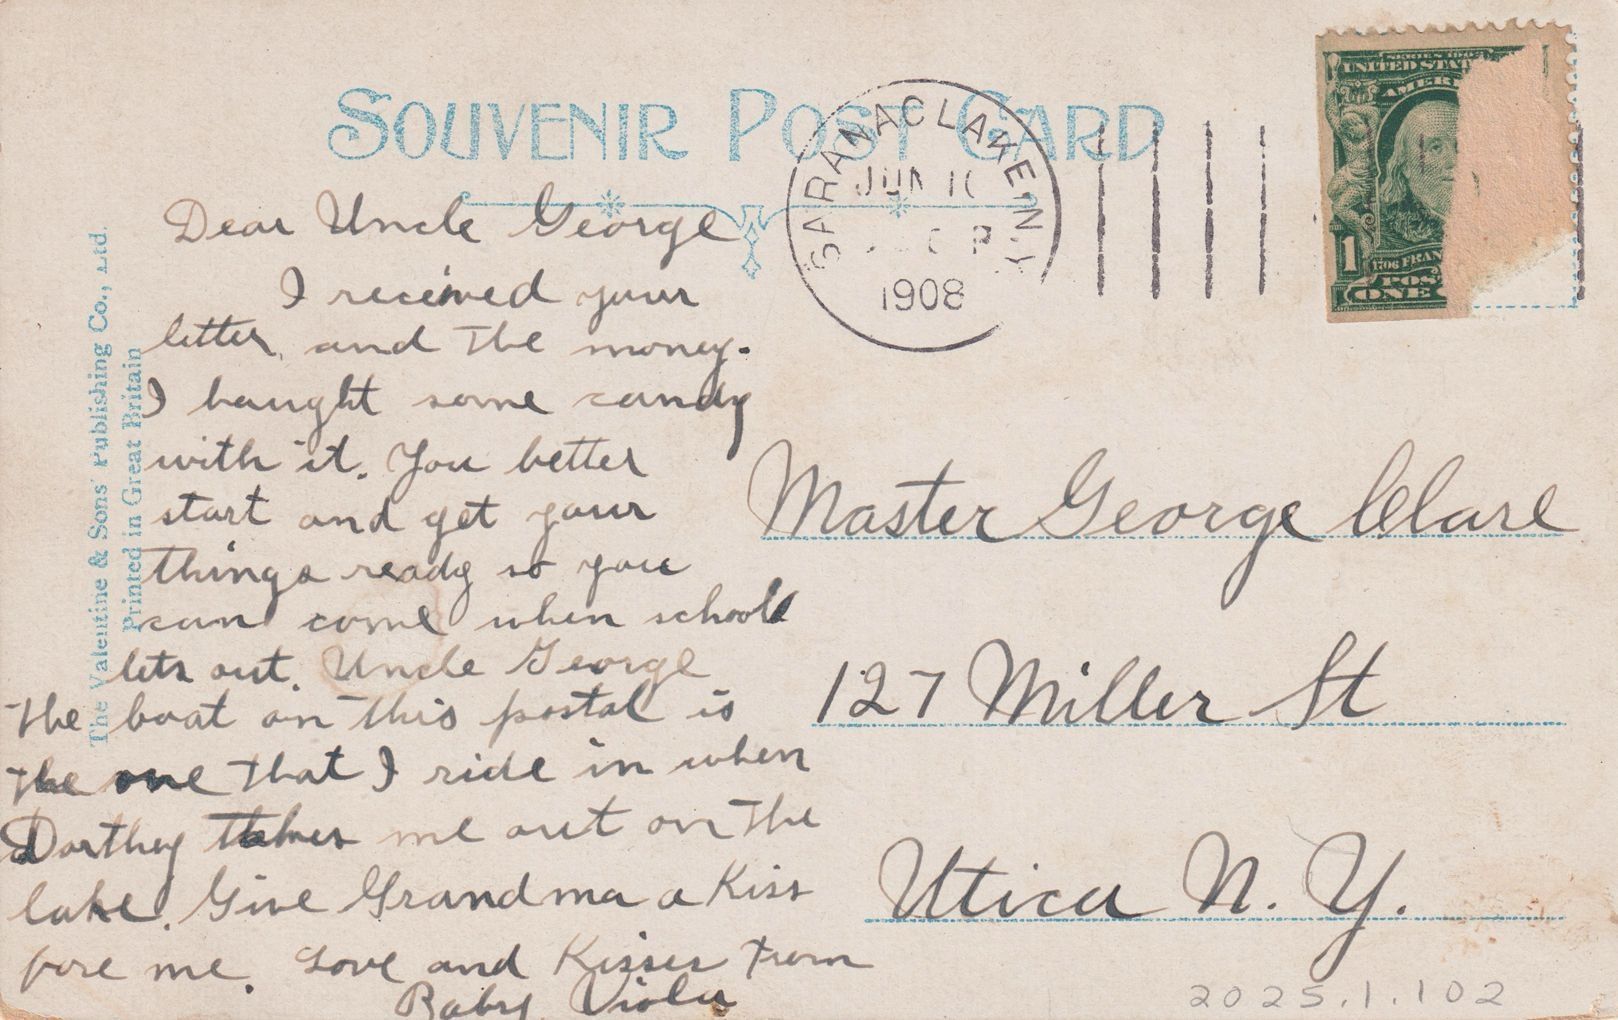 SOUVENIR POST CARD
SARANAC LAKE N.Y.
JUN 1
P
1908
SERIES 1902
UNITED STAT
AMER
1706 FRAN
1
POS
ONE
The Valentine & Sons' Publishing Co., Ltd.
Printed in Great Britain
Dear Uncle George
I received your
letter and the money.
I baught some candy
with it. You better
start and get your
things ready so you
can come when school
lets out. Uncle George
the boat on this postal is
the one that I ride in when
Dorthey takes me out on the
lake. Give Grandma a Kiss
fore me. Love and Kisses from
Baby Viola
Master George Clare
127 Miller St
Utica N. Y.
2025.1.102